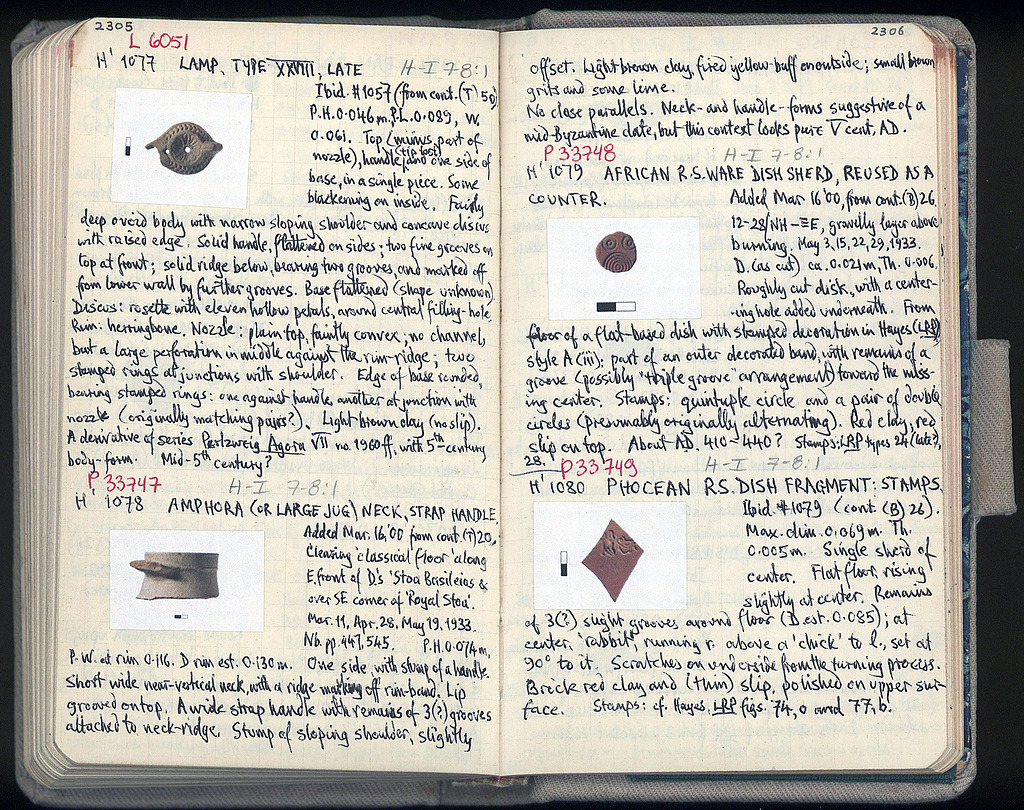 2305
L 6051
H' 1077 LAMP, TYPE XXVIII, LATE H-I 7-8:1
Ibid. #1057 (from cont. (T) 50)
P.H. 0.046 m. P.L. 0.089, W.
0.061. Top (minus part of
nozzle), handle (tip lost) and one side of
base, in a single piece. Some
blackening on inside. Fairly
deep ovoid body with narrow sloping shoulder and concave discus
with raised edge. Solid handle, flattened on sides; two fine grooves on
top at front; solid ridge below, bearing two grooves, and marked off
from lower wall by further grooves. Base flattened (shape unknown).
Discus: rosette with eleven hollow petals, around central filling-hole.
Rim: herringbone. Nozzle: plain top, faintly convex; no channel,
but a large perforation in middle against the rim-ridge; two
stamped rings at junctions with shoulder. Edge of base rounded,
bearing stamped rings: one against handle, another at junction with
nozzle (originally matching pairs?). Light brown clay (no slip).
A derivative of series Perlzweig Agora VII no. 1960 ff, with 5th-century
body-form. Mid-5th century?
P 33747 H-I 7-8:1
H' 1078 AMPHORA (OR LARGE JUG) NECK, STRAP HANDLE
Added Mar. 16,'00 from cont. (T) 20,
Clearing 'classical floor' along
E. front of D's 'Stoa Basileios &
over SE corner of 'Royal Stoa'.
Mar. 11, Apr. 28, May 19, 1933.
Nb. pp. 447, 545. P.H. 0.074 m.
P.W. at rim 0.116. D rim est. 0.130 m. One side, with stump of a handle.
Short wide near-vertical neck, with a ridge marking off rim-band. Lip
grooved on top. A wide strap handle with remains of 3(?) grooves
attached to neck-ridge. Stump of sloping shoulder, slightly
2306
offset. Light brown clay, fired yellow-buff on outside; small brown
grits and some lime.
No close parallels. Neck- and handle-forms suggestive of a
mid-Byzantine date, but this context looks pure V cent. AD.
P 33748 H-I 7-8:1
H' 1079 AFRICAN R.S. WARE DISH SHERD, REUSED AS A
COUNTER. Added Mar 16'00, from cont. (B) 26,
12-28/NH – ΞE, gravelly layer above
burning. May 3, 15, 22, 29, 1933.
D. (as cut) ca. 0.021 m, Th. 0.006.
Roughly cut disk, with a center-
-ing hole added underneath. From
floor of a flat-based dish with stamped decoration in Hayes (LRP)
style A (iii); part of an outer decorated band, with remains of a
groove (possibly "triple groove" arrangement) toward the miss-
ing center. Stamps: quintuple circle and a pair of double
circles (presumably originally alternating). Red clay, red
slip on top. About A.D. 410-440? Stamps: LRP types 24 (late?),
28.
P 33749 H-I 7-8:1
H' 1080 PHOCEAN R.S. DISH FRAGMENT: STAMPS.
Ibid. #1079 (cont. (B) 26).
Max. dim. 0.069 m. Th.
0.005 m. Single sherd of
center. Flat floor, rising
slightly at center. Remains
of 3(?) slight grooves around floor (D est. 0.085); at
center, 'rabbit', running r. above a 'chick' to l., set at
90° to it. Scratches on underside from the turning process.
Brick red clay and (thin) slip, polished on upper sur-
face. Stamps: cf. Hayes, LRP figs. 74, o and 77, b.